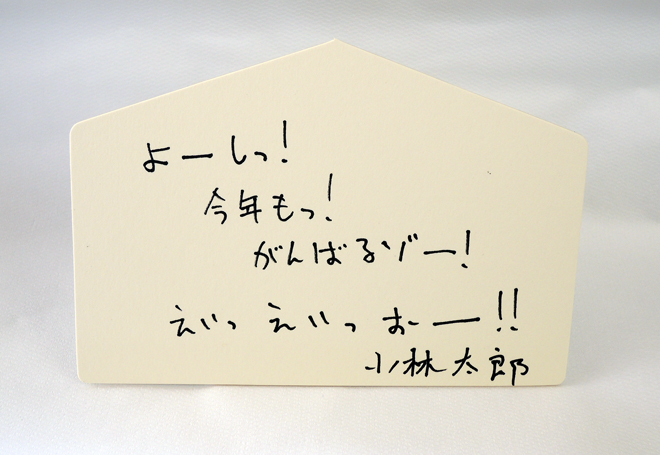 よーしっ!
今年もっ!
がんばるゾー!
えいっ えいっ おー!!
小林太郎